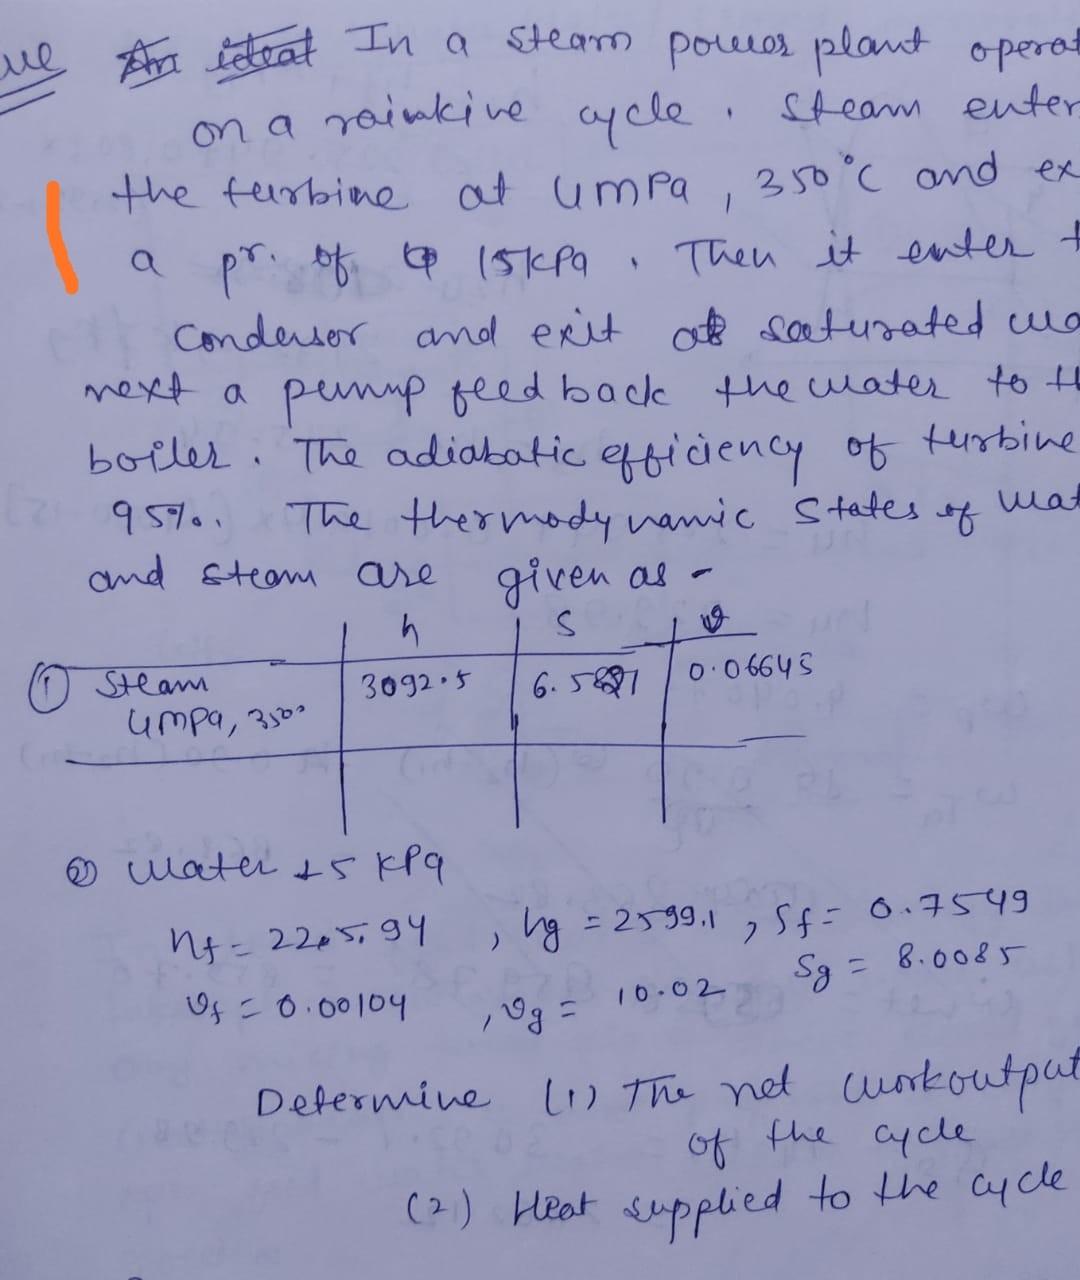 ue An ideal In a steam power plant operat
on a rainkine cycle. Steam enter
the turbine at 4mpa, 350°C and ex
a pr. of 15kpa. Then it enter t
Condensor and exit at saturated wa
next a pump feed back the water to th
boiler. The adiabatic efficiency of turbine
95%. The thermodynamic states of wat
and steam are given as -
h S v
① Steam 3092.5 6.5821 0.06645
4mpa, 350°
② water 15 kpa
hf = 225.94, hg = 2599.1, Sf = 0.7549
Sg = 8.0085
vf = 0.00104, vg = 10.02
Determine (1) The net workoutput
of the cycle
(2) Heat supplied to the cycle